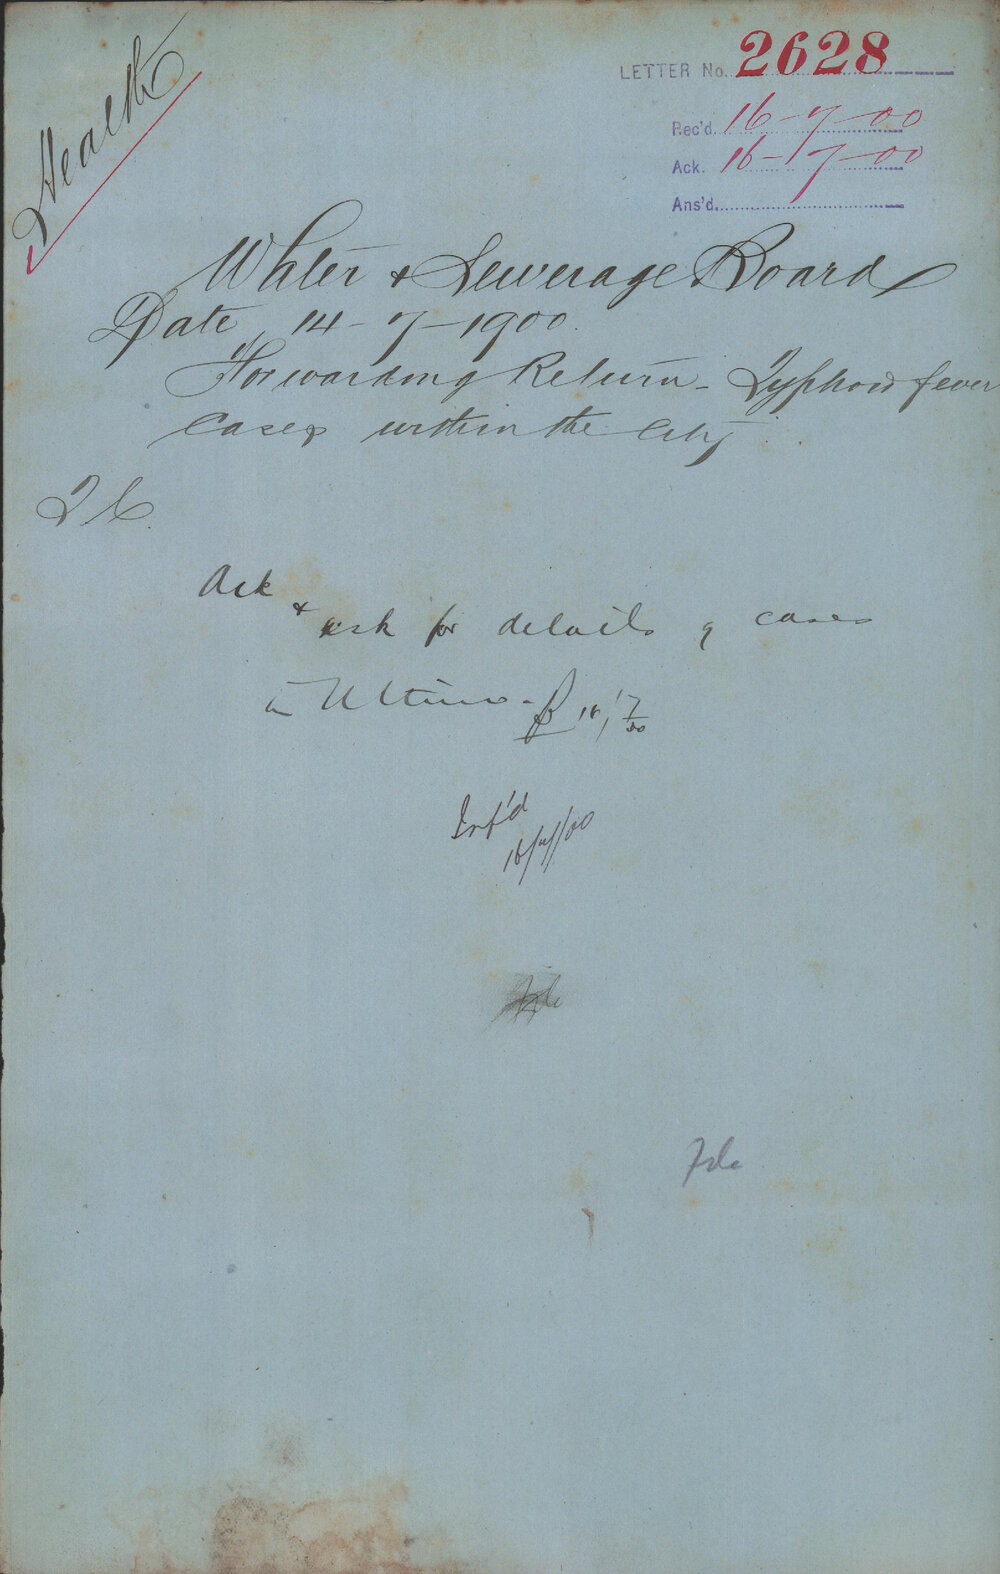 Health
LETTER No. 2628
Rec'd. 16-7-00
Ack. 16-7-00
Ans'd.
Water & Sewerage Board
Date 14-7-1900
Forwarding Return - Typhoid fever
Cases within the City
Ack
& ask for details of cases
in Ultimo. 16/7/00
Inf'd
16/7/00
File
File